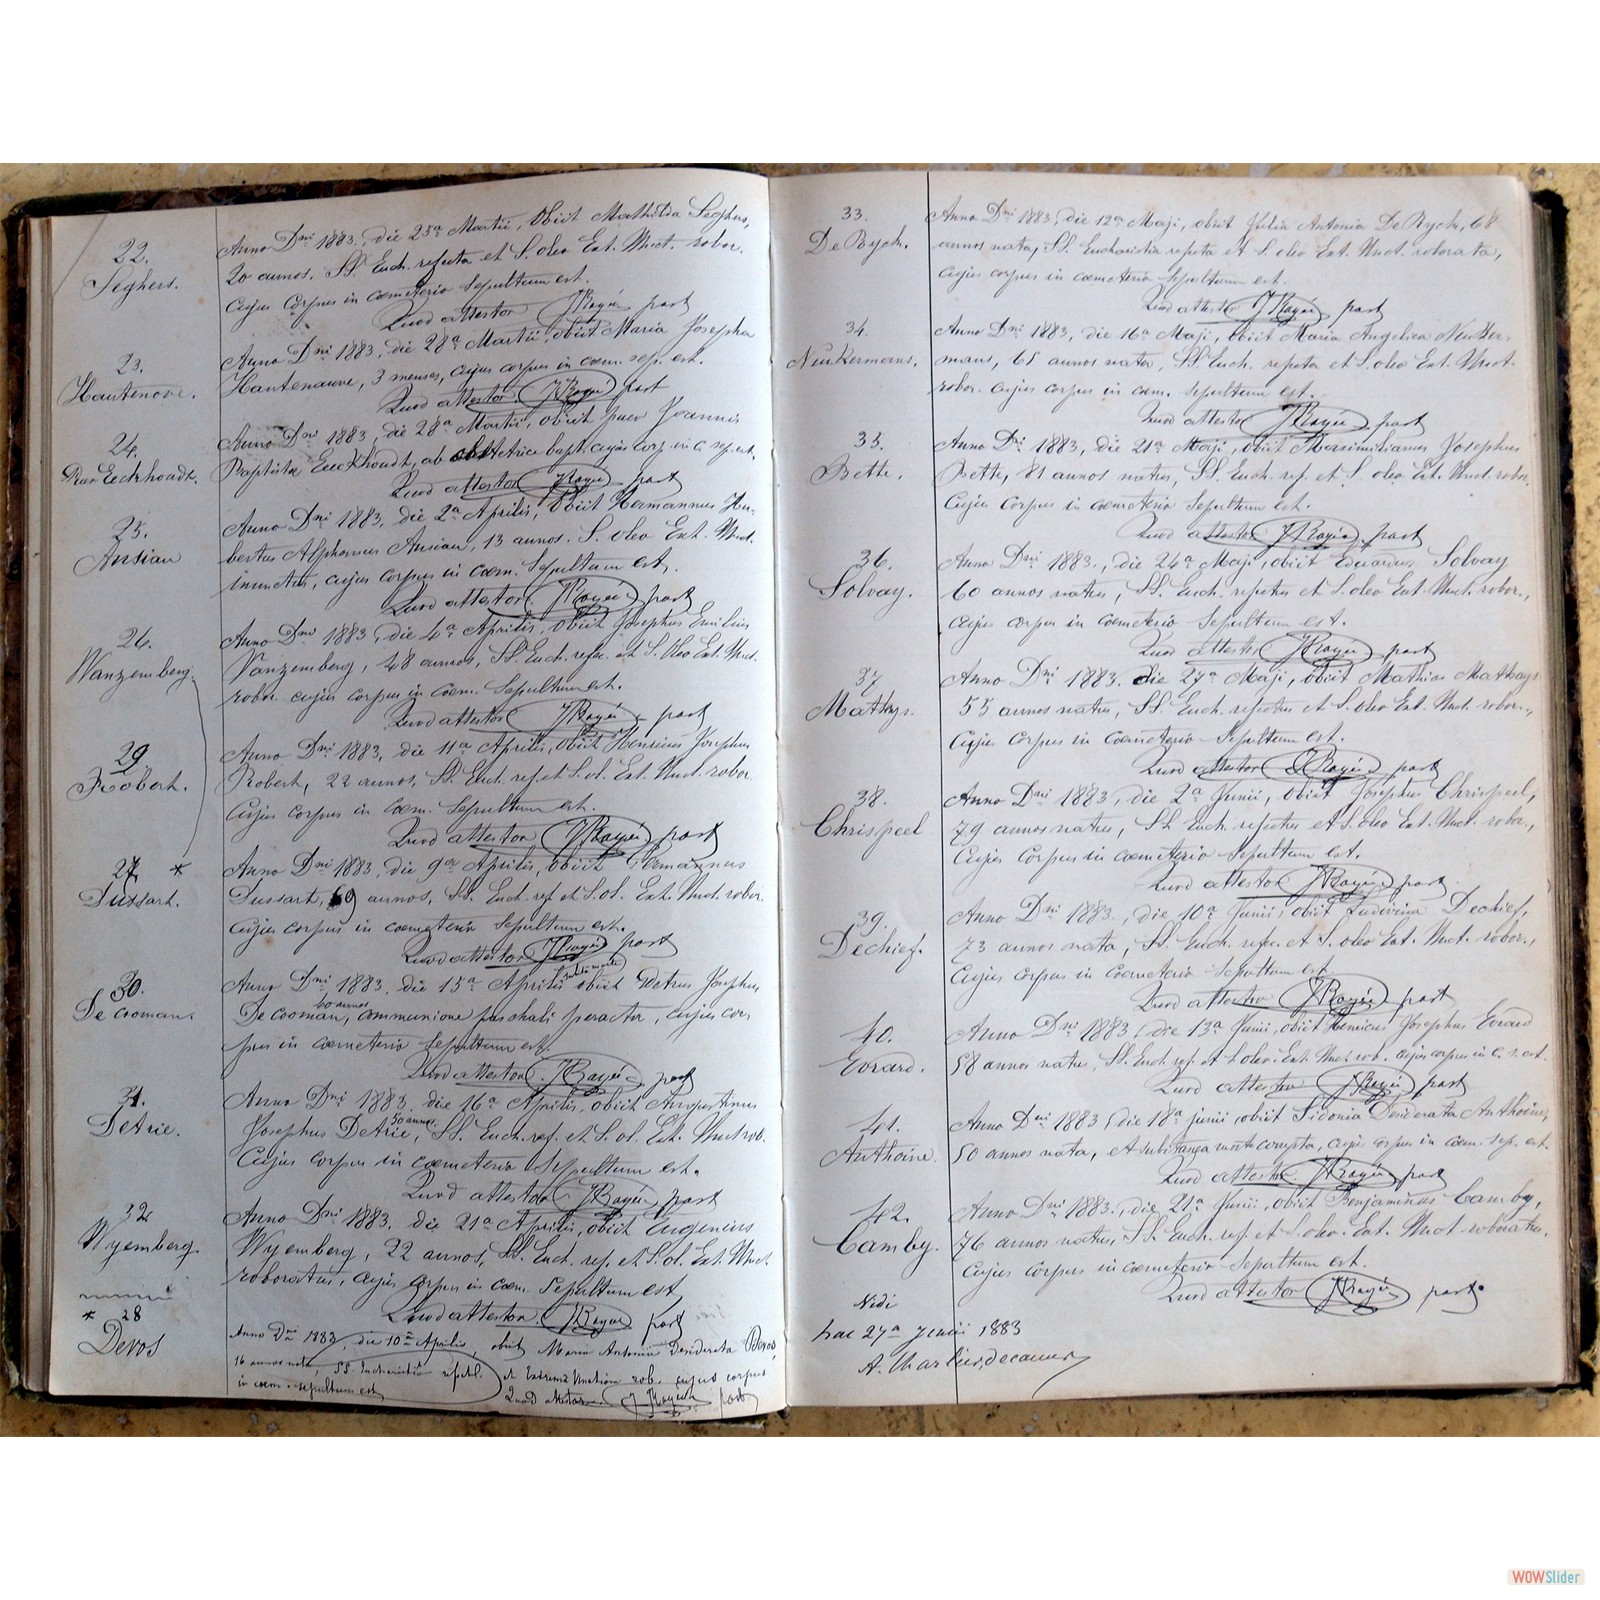 22.
Seghers.
Anno Dni 1883, die 25a Martii, obiit Mathilda Seghers,
20 annos. SS. Euch. refecta et S. oleo Ext. Unct. robor.
cujus corpus in cœmeterio sepultum est.
Quod attestor past
23.
Hautenove.
Anno Dni 1883, die 28a Martii, obiit Maria Josepha
Hautenauve, 3 menses, cujus corpus in cœm. sep. est.
Quod attestor past
24.
Van Eeckhoudt.
Anno Dni 1883, die 28a Martii, obiit puer Joannis
Baptistæ Eeckhoudt, ab obstetrice bapt. cujus corp. in c. sep. est.
Quod attestor past
25.
Ansiau
Anno Dni 1883, die 2a Aprilis, obiit Hermannus Hu-
bertus Alphonsus Ansiau, 13 annos. S. oleo Ext. Unct.
inunctus, cujus corpus in cœm. sepultum est.
Quod attestor past
26.
Wanzemberg.
Anno Dni 1883, die 4a Aprilis, obiit Josephus Emilius
Vanzemberg, 48 annos, SS. Euch. refec. et S. oleo Ext. Unct.
robor. cujus corpus in cœm. sepultum est.
Quod attestor past
29
Robert.
Anno Dni 1883, die 11a Aprilis, obiit Henricus Josephus
Robert, 22 annos, SS. Euch. ref. et S. ol. Ext. Unct. robor
cujus corpus in cœm. sepultum est.
Quod attestor past
27. *
Tussart.
Anno Dni 1883, die 9a Aprilis, obiit
Tussart, 69 annos, SS. Euch. ref et S. ol. Ext. Unct. robor.
cujus corpus in cœmeterio sepultum est.
Quod attestor past
30.
De Cooman.
Anno Dni 1883, die 15a Aprilis subita morte obiit Petrus Josephus
De Cooman, 60 annos communione paschali peracta, cujus cor-
pus in cœmeterio sepultum est.
Quod attestor past
31.
Detrie.
Anno Dni 1883, die 16a Aprilis, obiit Augustinus
Josephus Detrie, 50 annos. SS. Euch. ref. et S. ol. Ext. Unct. rob.
cujus corpus in cœmeterio sepultum est.
Quod attestor past
32
Wyemberg.
Anno Dni 1883, die 21a Aprilis, obiit Eugenius
Wyemberg, 22 annos, SS. Euch. ref. et S. ol. Ext. Unct.
roboratus, cujus corpus in cœm. sepultum est
Quod attestor past
* 28
Devos
Anno Dni 1883, die 10a Aprilis, obiit Maria Antonia Desiderata Devos,
16 annos nata, SS. Eucharistia et Extrema Unctione rob. cujus corpus
in cœm. sepultum est
Quod attestor past
33.
De Rych.
Anno Dni 1883, die 12a Maji, obiit Julia Antonia De Rych, 68
annos nata, SS. Eucharistia refecta et S. oleo Ext. Unct. roborata,
cujus corpus in cœmeterio sepultum est.
Quod attestor past
34.
Neukermans.
Anno Dni 1883, die 16a Maji, obiit Maria Angelica Neuker-
mans, 65 annos nata, SS. Euch. refecta et S. oleo Ext. Unct.
robor. cujus corpus in cœm. sepultum est.
Quod attestor past
35.
Bette.
Anno Dni 1883, die 21a Maji, obiit Maximilianus Josephus
Bette, 81 annos natus, SS. Euch. ref. et S. oleo Ext. Unct. robor.
cujus corpus in cœmeterio sepultum est.
Quod attestor past
36.
Solvay.
Anno Dni 1883, die 24a Maji, obiit Eduardus Solvay
60 annos natus, SS. Euch. refectus et S. oleo Ext. Unct. robor.,
cujus corpus in cœmeterio sepultum est.
Quod attestor past
37
Mathys.
Anno Dni 1883. die 27a Maji, obiit Mathias Mathys
55 annos natus, SS. Euch. refectus et S. oleo Ext. Unct. robor.,
cujus corpus in cœmeterio sepultum est.
Quod attestor past
38.
Chrispeel
Anno Dni 1883, die 2a Junii, obiit Josephus Chrispeel,
79 annos natus, SS. Euch. refectus et S. oleo Ext. Unct. robor.,
cujus corpus in cœmeterio sepultum est.
Quod attestor past
39.
Dechief.
Anno Dni 1883, die 10a Junii, obiit Ludovica Dechief,
73 annos nata, SS. Euch. refec. et S. oleo Ext. Unct. robor.,
cujus corpus in cœmeterio sepultum est
Quod attestor past
40.
Evrard.
Anno Dni 1883, die 13a Junii, obiit Henricus Josephus Evrard
58 annos natus, SS. Euch. ref. et S. oleo. Ext. Unct. rob. cujus corpus in c. s. est.
Quod attestor past
41.
Anthoine.
Anno Dni 1883, die 18a junii obiit Sidonia Desiderata Anthoine,
50 annos nata, et subitanea morte correpta, cujus corpus in cœm. sep. est.
Quod attestor past
42.
Camby.
Anno Dni 1883, die 21a Junii, obiit Benjaminus Camby,
76 annos natus, SS. Euch. ref. et S. oleo. Ext. Unct. roboratus,
cujus corpus in cœmeterio sepultum est.
Quod attestor past
Vidi
hac 27a Junii 1883
A. Charlier, decanus
WOWSlider